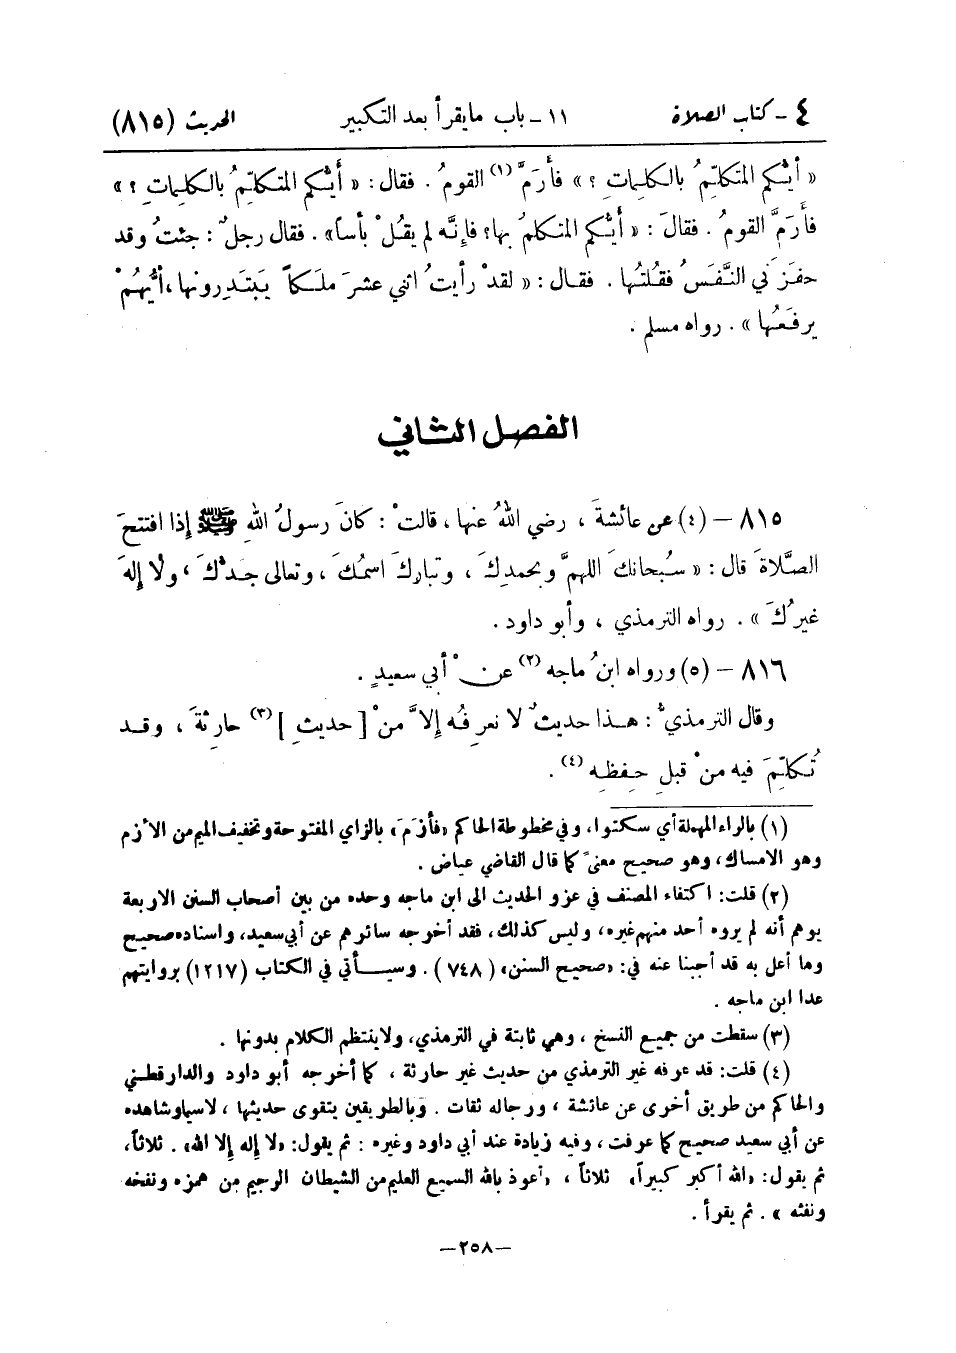 ٤ ـ كتاب الصلاة ١١ ـ باب مايقرأ بعد التكبير الحديث (٨١٥)
« أيُّكم المتكلِّمُ بالكلماتِ ؟ » فأرَمَّ (١) القومُ . فقال : « أيُّكم المتكلِّمُ بالكلِماتِ ؟ »
فأرَمَّ القومُ . فقالَ : « أيُّكم المتكلمُ بها؟ فإنَّه لم يقُلْ بأساً» . فقال رجلٌ : جئتُ وقد
حفَزَني النَّفَسُ فقُلتُها . فقال : « لقدْ رأيتُ اثني عشرَ ملَكاً يَبتَدِرونها ، أيُّهُمْ
يرفَعُها » . رواه مسلم .
الفصل الثاني
٨١٥ – (٤) عن عائشةَ ، رضي اللهُ عنها ، قالتْ : كانَ رسولُ اللهِ ﷺ إذا افتتحَ
الصَّلاةَ قال : « سُبحانكَ اللهمَّ وبحمدِكَ ، وتباركَ اسمُكَ ، وتعالى جدُّكَ ، ولا إلهَ
غيرُكَ » . رواه الترمذي ، وأبو داود .
٨١٦ – (٥) ورواه ابنُ ماجه (٢) عنْ أبي سعيدٍ .
وقال الترمذيُّ : هذا حديثٌ لا نعرِفُه إلاَّ منْ [ حديثِ ] (٣) حارِثةَ ، وقد
تُكلِّمَ فيه منْ قبلِ حِفظِه (٤) .
(١) بالراء المهملة أي سكتوا، وفي مخطوطة الحاكم «فأزَمَ» بالزاي المفتوحة وتخفيف الميم من الأزم
وهو الامساك، وهو صحيح معنىً كما قال القاضي عياض .
(٢) قلت: اكتفاء المصنف في عزو الحديث الى ابن ماجه وحده من بين أصحاب السنن الاربعة
يوهم أنه لم يروه أحد منهم غيره، وليس كذلك، فقد أخرجه سائرهم عن أبي سعيد، واسناده صحيح
وما أعل به قد أجبنا عنه في: «صحيح السنن» ( ٧٤٨ ) . وسيأتي في الكتاب (١٢١٧) بروايتهم
عدا ابن ماجه .
(٣) سقطت من جميع النسخ ، وهي ثابتة في الترمذي، ولا ينتظم الكلام بدونها .
(٤) قلت: قد عرفه غير الترمذي من حديث غير حارثة ، كما أخرجه أبو داود والدارقطني
والحاكم من طريق أخرى عن عائشة ، ورجاله ثقات . وبالطريقين يتقوى حديثها ، لاسيما وشاهده
عن أبي سعيد صحيح كما عرفت ، وفيه زيادة عند أبي داود وغيره : ثم يقول: «لا إله إلا الله» . ثلاثاً،
ثم يقول: «الله أكبر كبيراً» ثلاثاً ، «أعوذ بالله السميع العليم من الشيطان الرجيم من همزه ونفخه
ونفثه » . ثم يقرأ .
—٢٥٨—